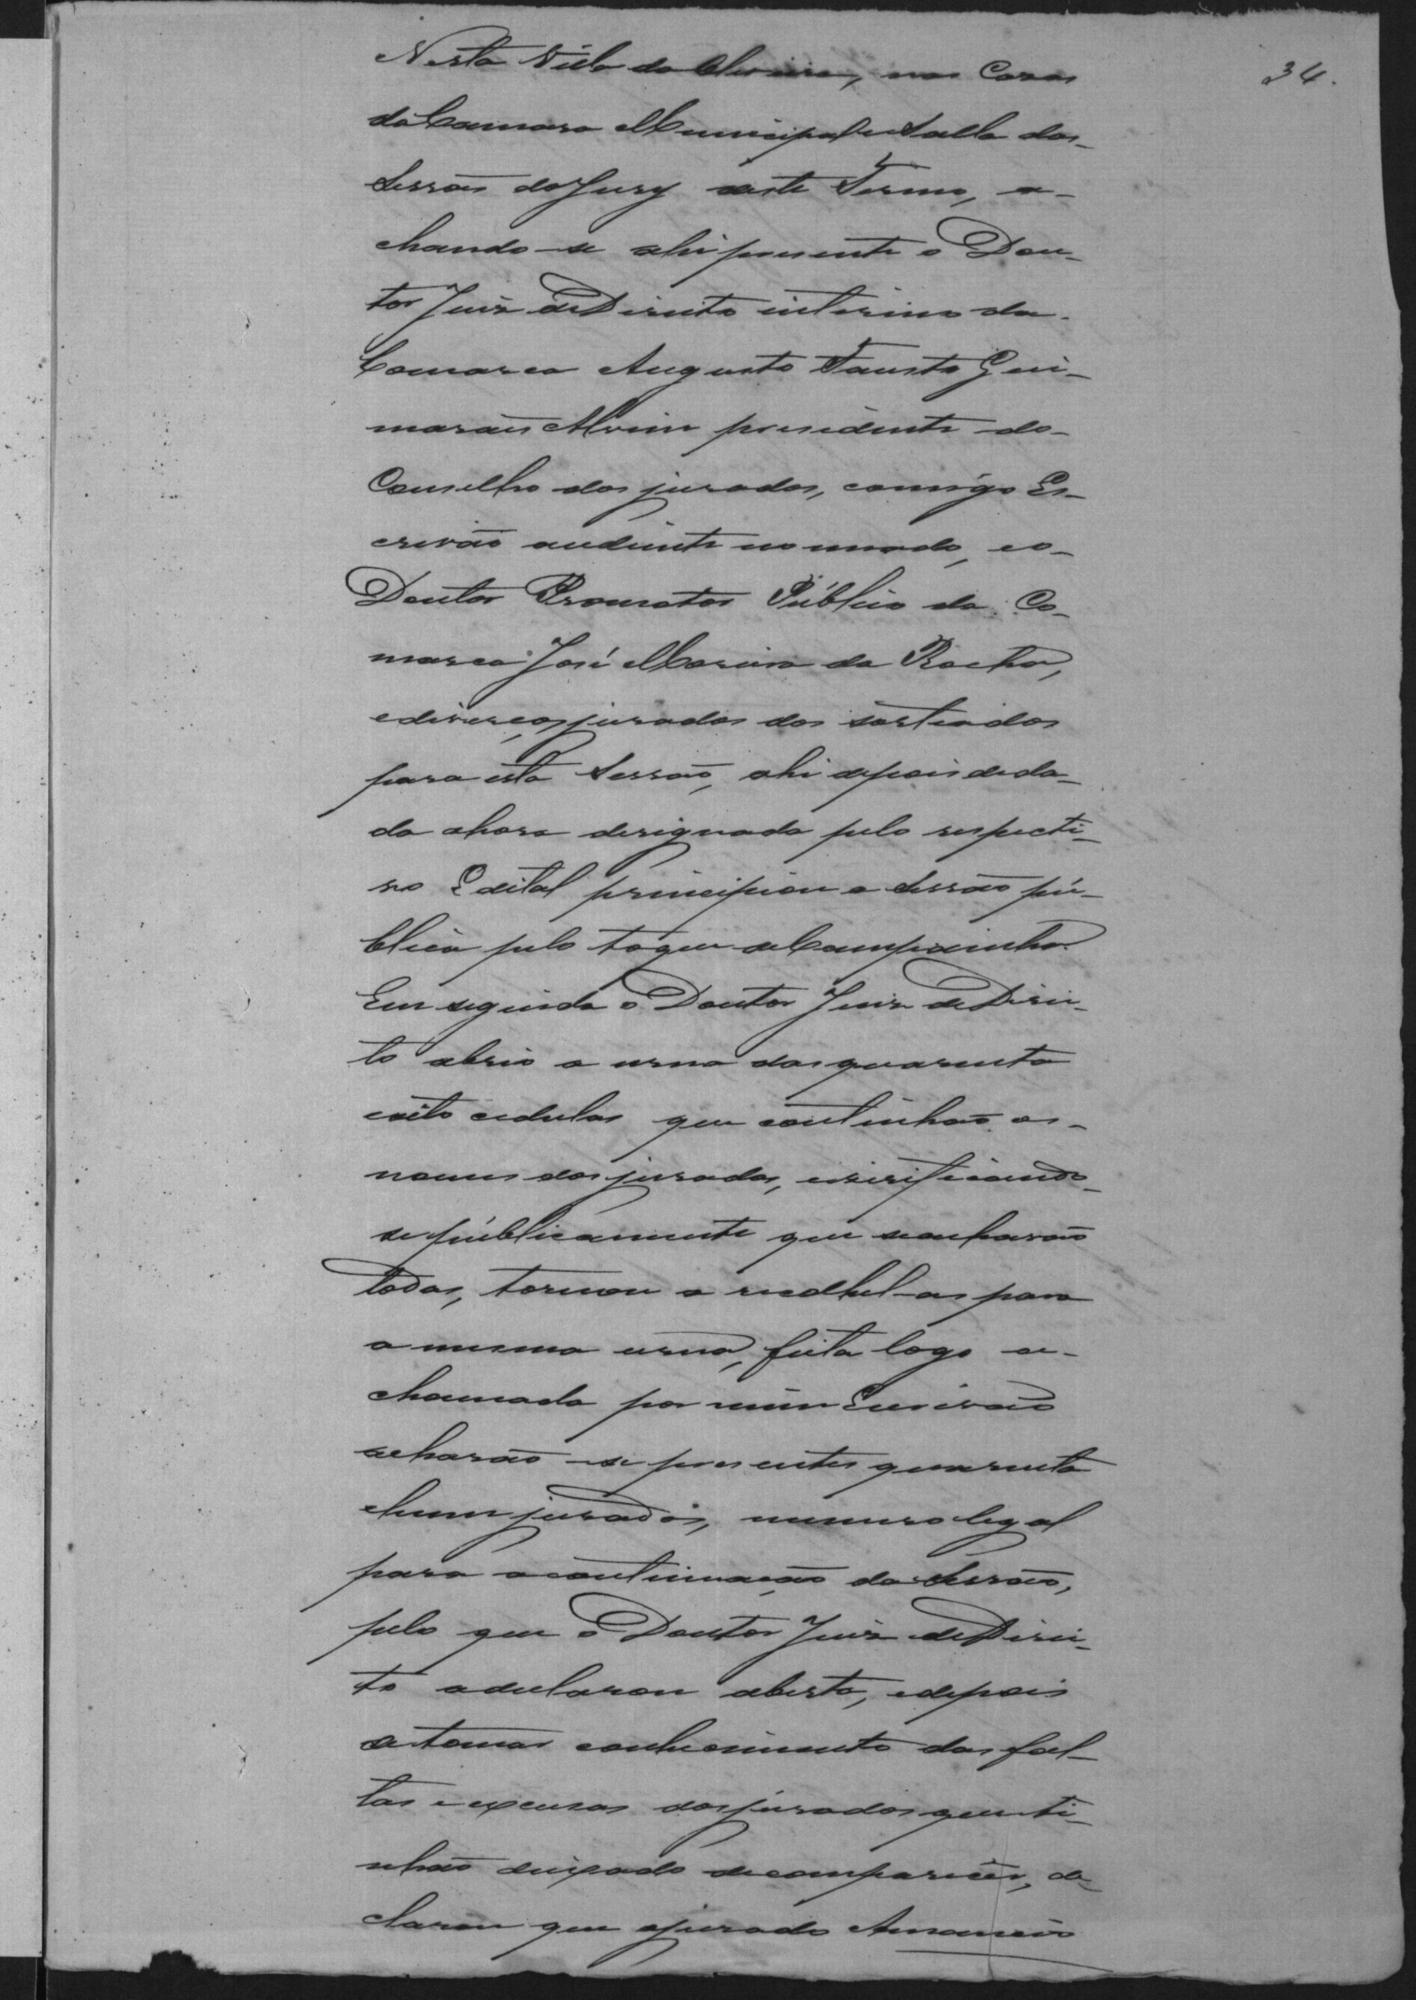 34.
Nesta Villa da Oliveira, nas Casas
da Camara Municipal e Salla das
Sessões do Jury deste Termo, a-
chando-se ahi presente o Dou-
tor Juiz de Direito interino da
Comarca Augusto Fausto Gui-
marães Alvim presidente do
Conselho dos jurados, comigo Es-
crivão audiente nomeado, e o
Doutor Promotor Público da Co-
marca José Moreira da Rocha,
e diverços jurados dos sorteados
para esta Sessão, ahi depois de da-
da ahora designada pelo respecti-
vo Edital principiou a Sessão pú-
blica pelo toque de Campainha.
Em seguida o Doutor Juiz de Direi-
to abrio a urna das quarenta
e oito cedulas que continhão os
nomes dos jurados, e virificando-
se públicamente que se acharão
todas, tornou a recolhel-as para
a mesma urna, feita logo a
chamada por mim Escrivão
acharão-se presentes quarenta
e hum jurados, numero legal
para a continuação da Sessão,
pelo que o Doutor Juiz de Direi-
to a declarou aberta, e depois
de tomar conhecimento das fal-
tas e excusas dos jurados que ti-
nhão deixado de comparicer, de-
clarou que o jurado Amancio